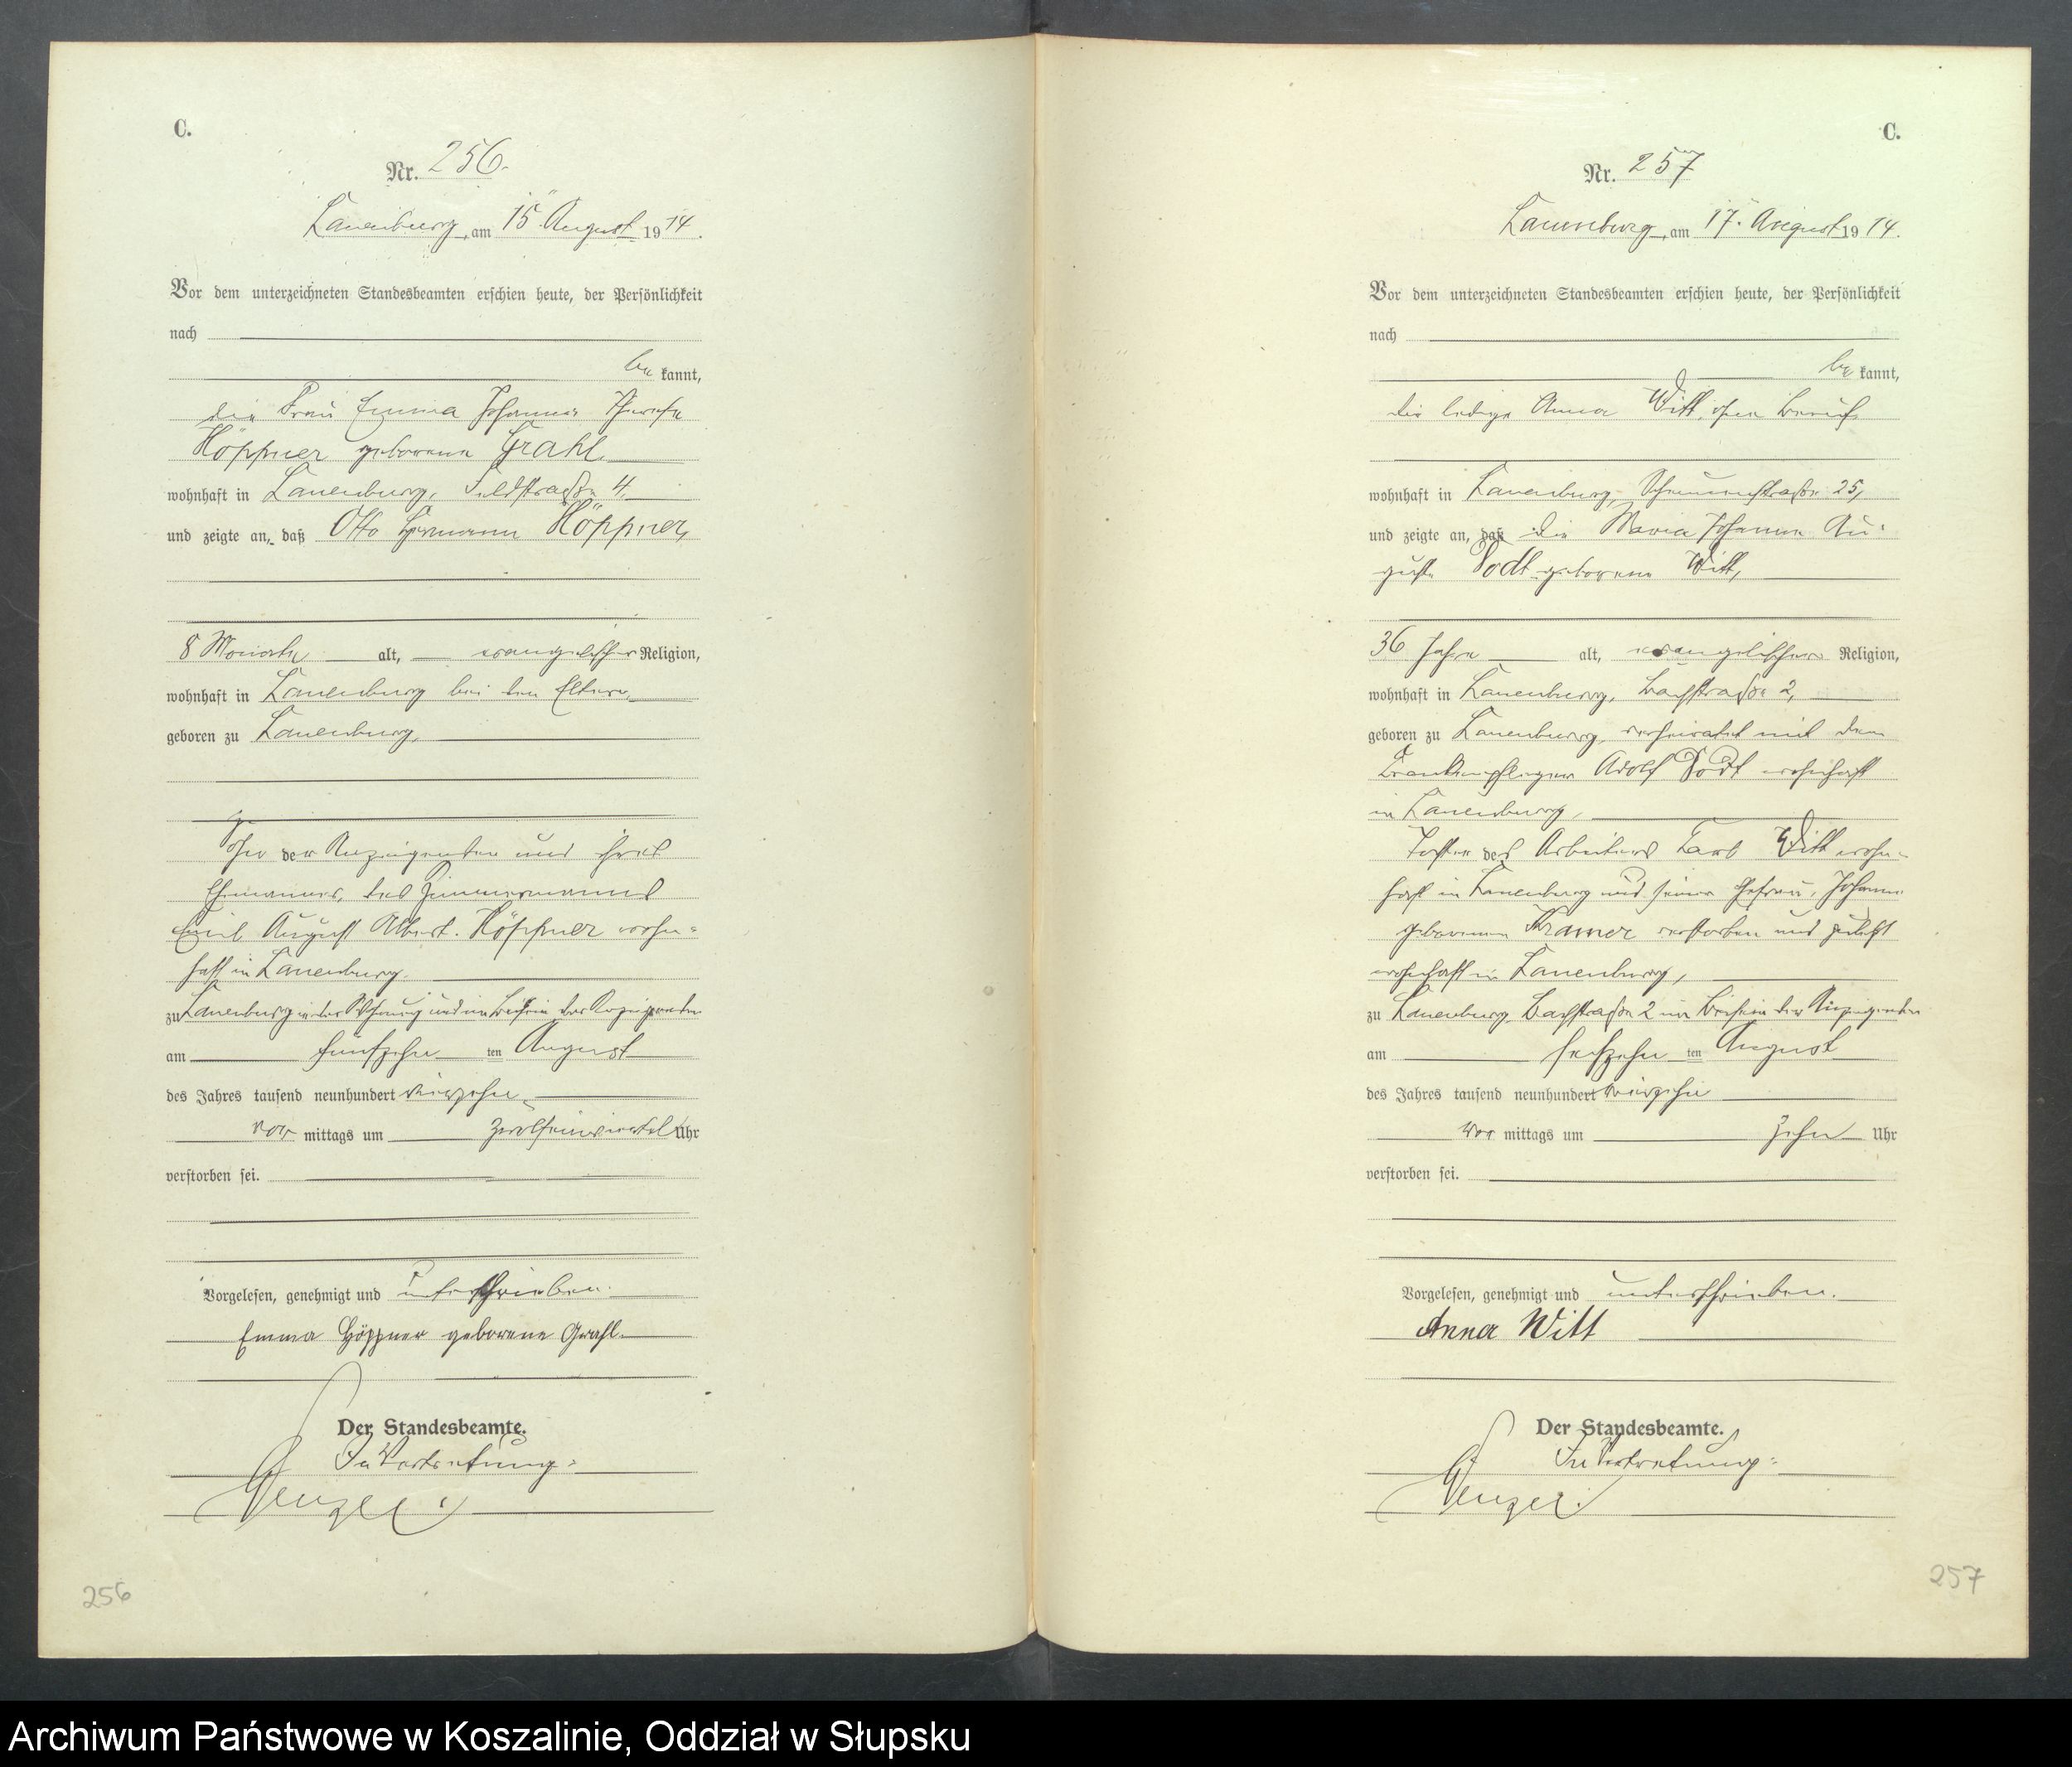 C.
Nr. 256.
Lauenburg, am 15. August 1914.
Vor dem unterzeichneten Standesbeamten erschien heute, der Persönlichkeit
nach
be kannt,
die Frau Emma Johanna Therese
Höppner geborene Grahl
wohnhaft in Lauenburg, Feldstraße 4,
und zeigte an, daß Otto Hermann Höppner,
8 Monate alt, evangelischer Religion,
wohnhaft in Lauenburg bei den Eltern,
geboren zu Lauenburg,
Sohn der Anzeigenden und ihres
Ehemannes, des Zimmermanns
Emil August Albert Höppner wohn-
haft in Lauenburg.
zu Lauenburg in der Wohnung und im Beisein der Anzeigenden
am fünfzehn ten August
des Jahres tausend neunhundert vierzehn
vor mittags um zwölfeinviertel Uhr
verstorben sei.
Vorgelesen, genehmigt und unterschrieben.
Emma Höppner geborene Grahl.
Der Standesbeamte.
In Vertretung:
256
C.
Nr. 257
Lauenburg, am 17. August 1914.
Vor dem unterzeichneten Standesbeamten erschien heute, der Persönlichkeit
nach
be kannt,
die ledige Anna Witt, ohne Beruf
wohnhaft in Lauenburg, Scheunenstraße 25,
und zeigte an, daß die Maria Johanna Au-
guste Vodt geborene Witt,
36 Jahre alt, evangelischer Religion,
wohnhaft in Lauenburg, Bachstraße 2,
geboren zu Lauenburg, verheiratet mit dem
Krankenpfleger Adolf Vodt wohnhaft
in Lauenburg,
Tochter des Arbeiters Karl Witt wohn-
haft in Lauenburg und seiner Ehefrau, Johanna
geborenen Kramer verstorben und zuletzt
wohnhaft in Lauenburg,
zu Lauenburg Bachstraße 2 im Beisein der Anzeigenden
am sechzehn ten August
des Jahres tausend neunhundert vierzehn
vor mittags um zehn Uhr
verstorben sei.
Vorgelesen, genehmigt und unterschrieben.
Anna Witt
Der Standesbeamte.
In Vertretung:
257
Archiwum Państwowe w Koszalinie, Oddział w Słupsku